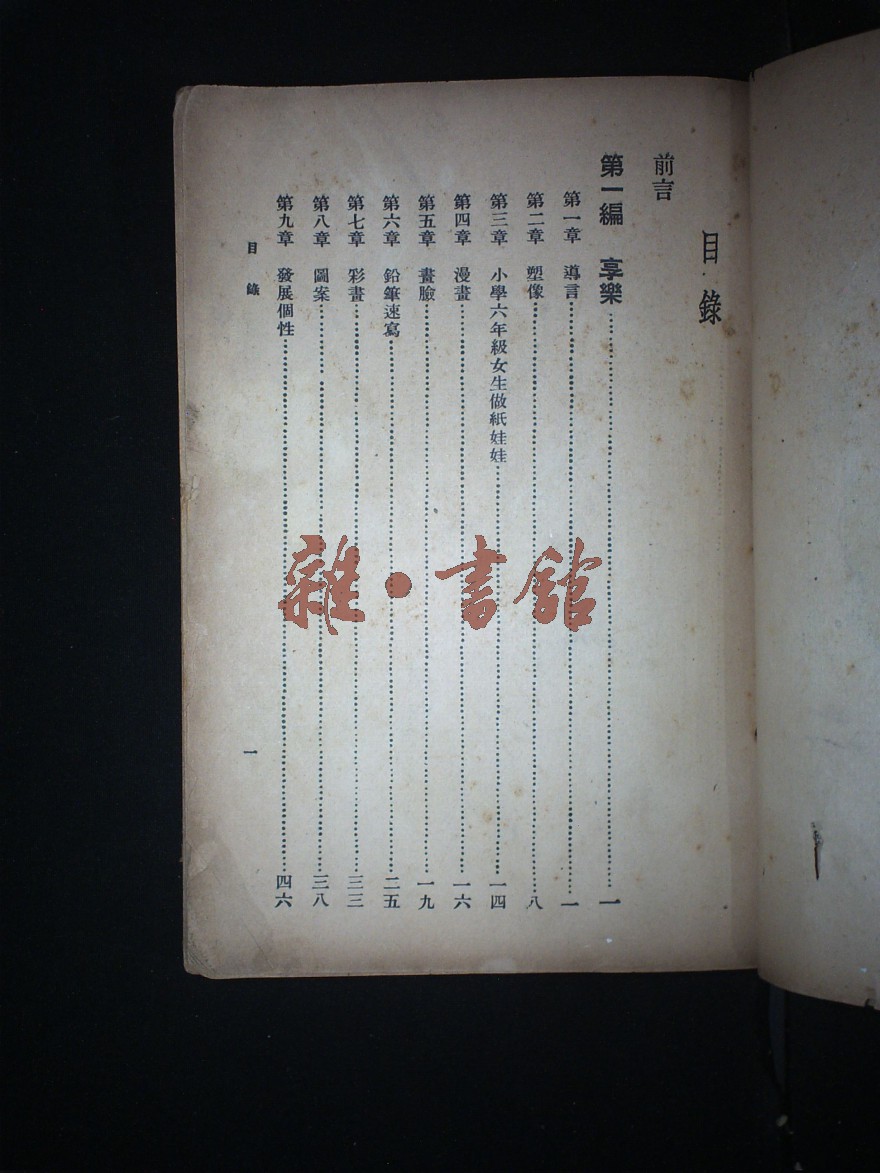 目錄
前言
第一編 享樂……一
第一章 導言……一
第二章 塑像……八
第三章 小學六年級女生做紙娃娃……一四
第四章 漫畫……一六
第五章 畫臉……一九
第六章 鉛筆速寫……二五
第七章 彩畫……三三
第八章 圖案……三八
第九章 發展個性……四六
目錄 一
雜·書館